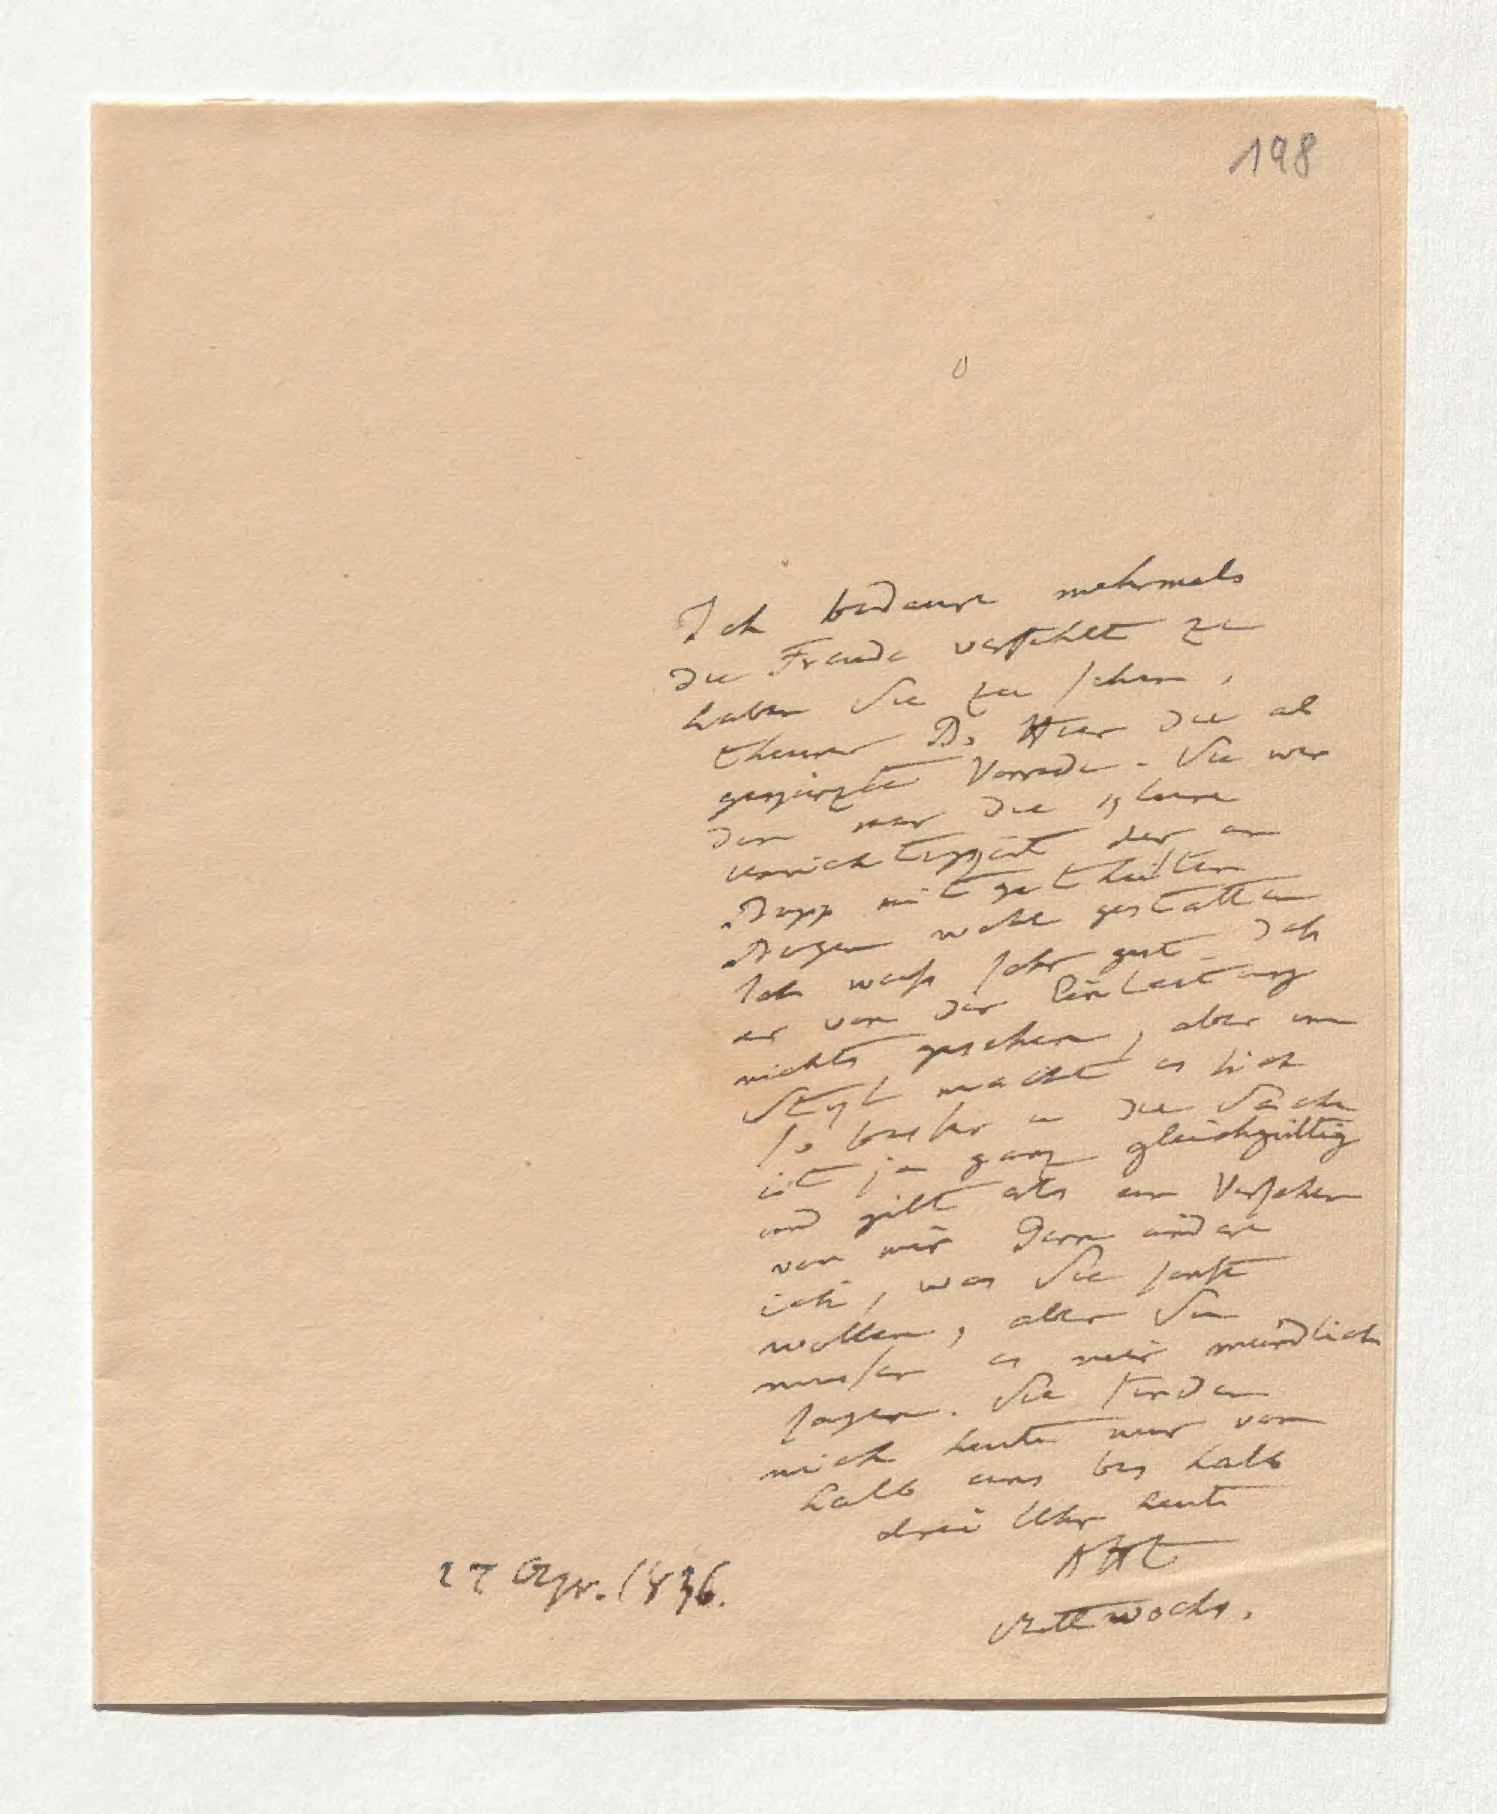 198
Ich bedaure mehrmals
die Freude verfehlt zu
haben Sie zu sehen,
theurer B. Hier die ab
gekürzte Vorrede. Sie wer
den mir die kleine
Unrichtigkeit der an
Bopp mitgetheilten
Bogen wohl gestatten
Ich weiß sehr gut daß
er von der Einleitung
nichts gesehen, aber im
Styl macht es sich
so besser u die Sache
ist ja ganz gleichgültig
und gilt als ein Versehen
von mir Gern ändre
ich, was Sie sonst
wollen, aber Sie
müssen es mir mündlich
sagen. Sie finden
mich heute nur von
halb eins bis halb
drei Uhr heute
AHt
Mittwochs.
27 Apr. 1836.